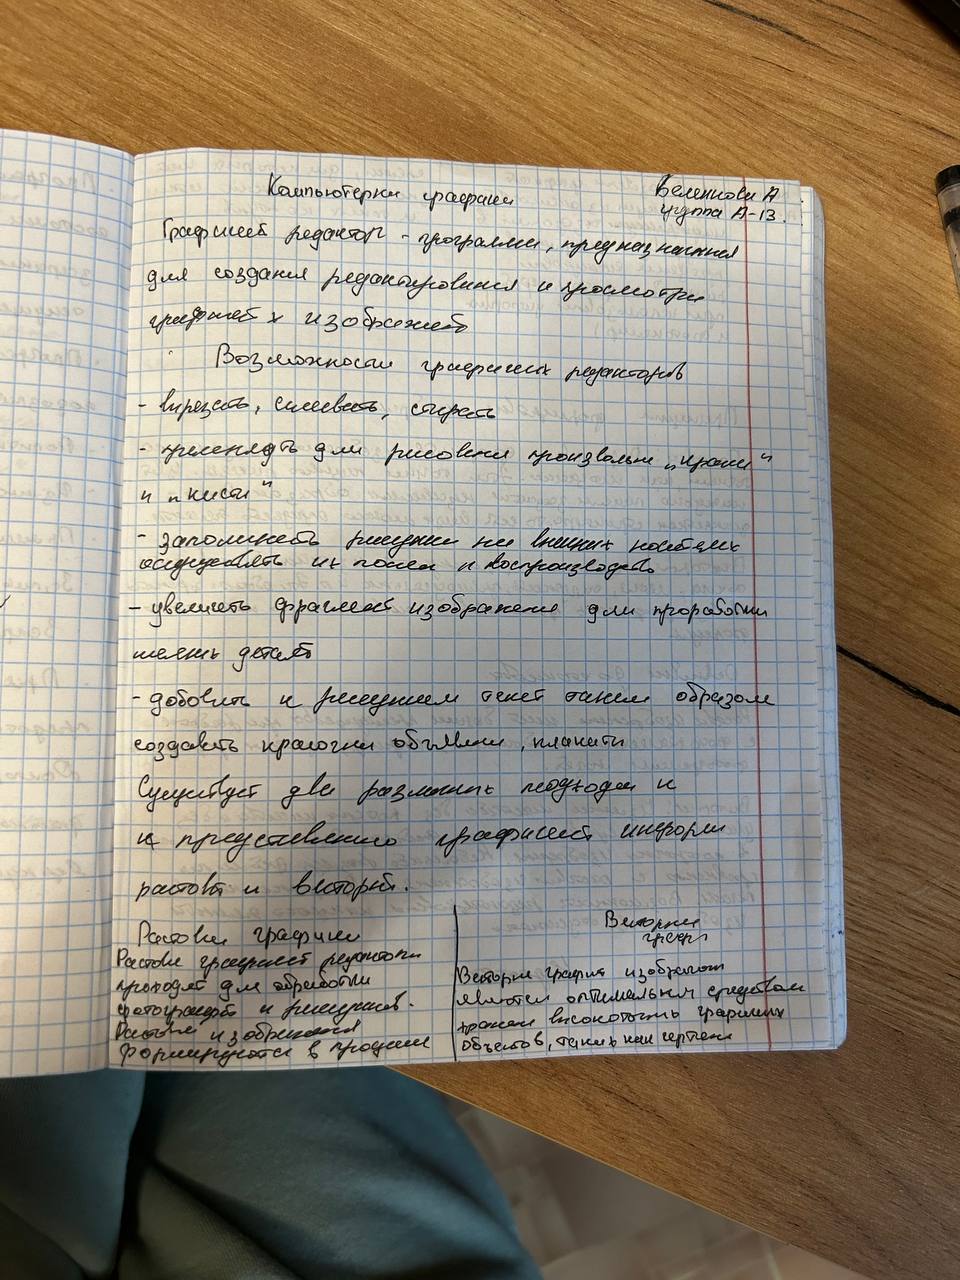 Компьютерни графики
группа А-13
Графичей редактор - программи, предназначния
для создания редактирования и просмотри
изображей
Возможности графичиих редакторов
- вырезать, склеивать, стирать
- применять для рисовния произвольн „краски"
и „кисти"
- запоминать рисунки ни внешних носителях
осуществлять их поиск и воспроизводть
- увеличть фрагмент изображение для проработки
мелких деталей
- добовить к рисункам текст таким образом
создавать красочни объявлени, плакаты
Существует два различных подхода к
к представлению графичест информ
растовй и векторный.
Растови графики
Растови графичест редакторы
проходят для обработки
фотографй и рисунков.
Растови изображения
формируются в процессе
Векторни
граф
Векторни график изображат
являются оптимальним средством
хранеи высокоточнь графичих
объектов, такие как чертежи